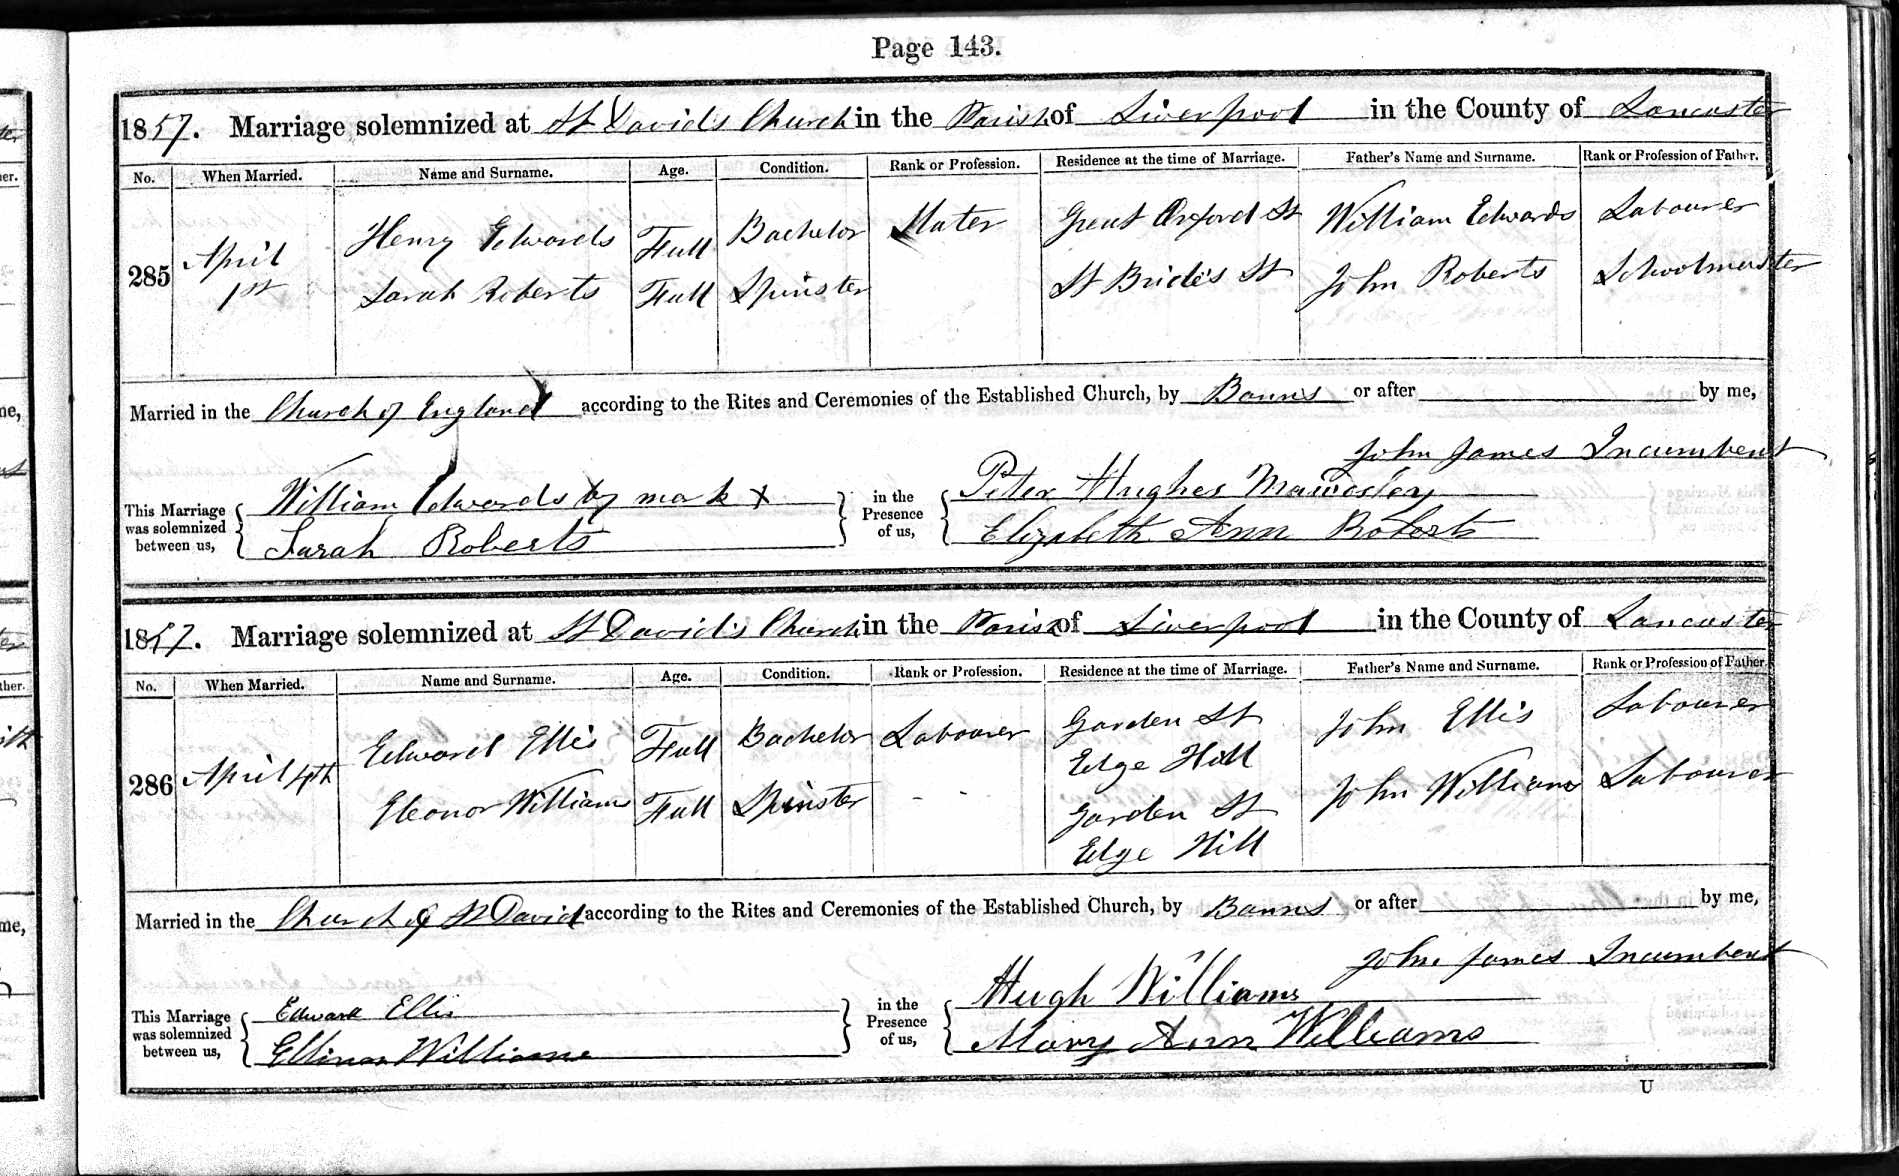 Page 143.
1857. Marriage solemnized at St David's Church in the Parish of Liverpool in the County of Lancaster
No. When Married. Name and Surname. Age. Condition. Rank or Profession. Residence at the time of Marriage. Father's Name and Surname. Rank or Profession of Father.
285 April 1st Henry Edwards Full Bachelor Mater Great Oxford St William Edwards Labourer
Sarah Roberts Full Spinster St Bride's St John Roberts Schoolmaster
Married in the Church of England according to the Rites and Ceremonies of the Established Church, by Banns or after by me,
John James Incumbent
This Marriage was solemnized between us, William Edwards by mark x in the Presence of us, Peter Hughes
Sarah Roberts Elizabeth Ann Roberts
1857. Marriage solemnized at St David's Church in the Parish of Liverpool in the County of Lancaster
No. When Married. Name and Surname. Age. Condition. Rank or Profession. Residence at the time of Marriage. Father's Name and Surname. Rank or Profession of Father.
286 April 4th Edward Ellis Full Bachelor Labourer Garden St Edge Hill John Ellis Labourer
Eleonor Williams Full Spinster - - Garden St Edge Hill John Williams Labourer
Married in the Church of St David according to the Rites and Ceremonies of the Established Church, by Banns or after by me,
John James Incumbent
This Marriage was solemnized between us, Edward Ellis in the Presence of us, Hugh Williams
Ellinor Williams Mary Ann Williams
U